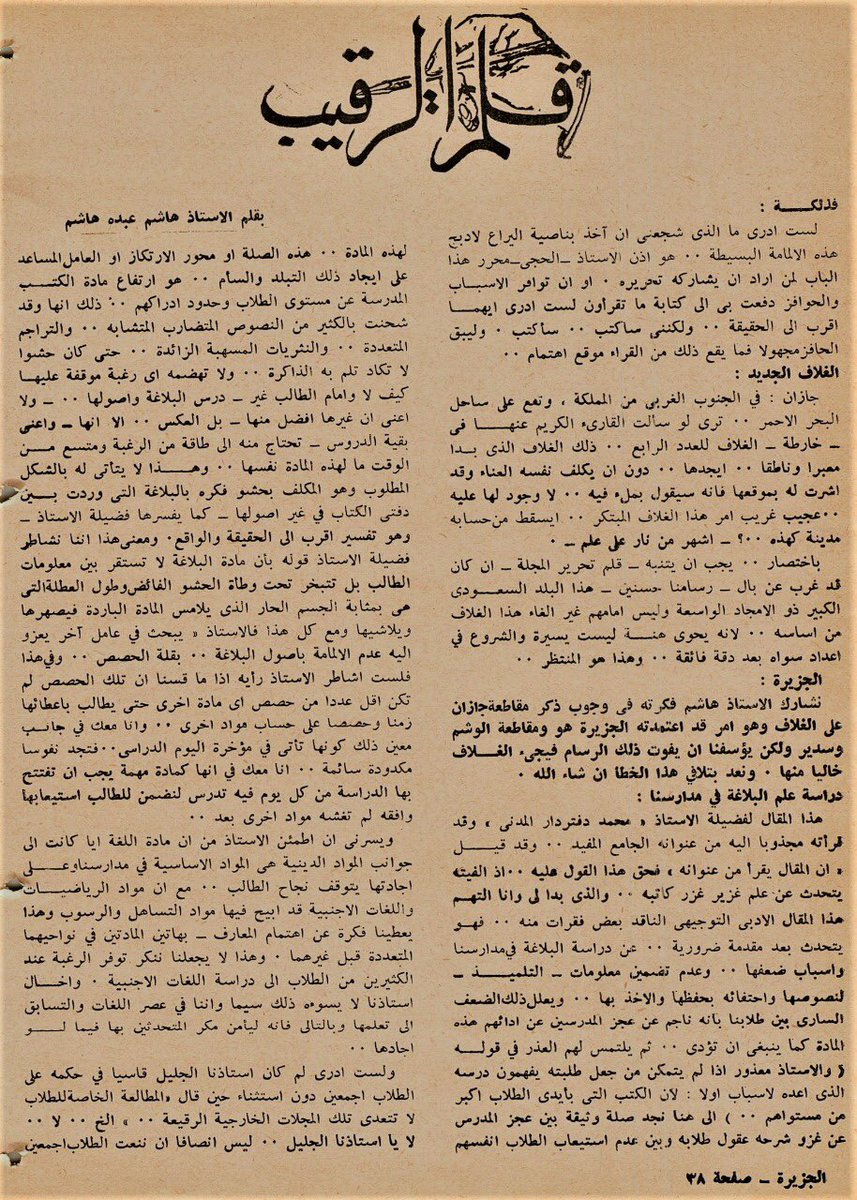 قلم الرقيب
فذلكـــــة :
لست ادرى ما الذى شجعنى ان آخذ بناصية اليراع لادبج
هذه الالمامة البسيطة ٠٠ هو اذن الاستاذ ــ الحجى ــ محرر هذا
الباب لمن اراد ان يشاركه تحريره ٠ او ان توافر الاسباب
والحوافز دفعت بى الى كتابة ما تقرأون لست ادرى ايهما
اقرب الى الحقيقة ٠٠ ولكننى ساكتب ٠٠ سأكتب ٠ وليبق
الحافز مجهولا فما يقع ذلك من القراء موقع اهتمام ٠٠
الغلاف الجديد :
جازان : في الجنوب الغربى من المملكة ، وتقع على ساحل
البحر الاحمر ٠٠ ترى لو سألت القارىء الكريم عنهـــا فى
ــ خارطة ــ الغلاف للعدد الرابع ٠٠ ذلك الغلاف الذى بـدا
معبرا وناطقا ٠٠ ايجدها ٠٠ دون ان يكلف نفسه العناء وقد
اشرت له بموقعها فانه سيقول بملء فيه ٠٠ لا وجود لها عليه
٠٠عجيب غريب امر هذا الغلاف المبتكر ٠٠ ايسقط من حسابه
مدينة كهذه ٠٠؟ ــ اشهر من نار على علم ــ ٠
باختصار ٠٠ يجب ان يتنبه ــ قلم تحرير المجلة ــ ان كان
قد غرب عن بال ــ رسامنا حسنين ــ هذا البلد السعـــودى
الكبير ذو الامجاد الواسعة وليس امامهم غير الغاء هذا الغلاف
من اساسه ٠٠ لانه يحوى هنـــة ليست يسيرة والشروع في
اعداد سواه بعد دقة فائقة ٠٠ وهذا هو المنتظر ٠٠
الجزيرة :
نشارك الاستاذ هاشم فكرته فى وجوب ذكر مقاطعة جازان
على الغلاف وهو امر قد اعتمدته الجزيرة هو ومقاطعة الوشم
وسدير ولكن يؤسفنا ان يفوت ذلك الرسام فيجىء الغـــلاف
خاليا منها ٠ ونعد بتلافي هذا الخطا ان شاء الله ٠
دراسة علم البلاغة في مدارسنا :
هذا المقال لفضيلة الاستاذ « محمد دفتردار المدنى » وقد
قرأته مجذوبا اليه من عنوانه الجامع المفيد ٠٠ وقد قيـــل
« ان المقال يقرأ من عنوانه » فحق هذا القول عليه ٠٠اذ الفيته
يتحدث عن علم غزير غزر كاتبه ٠٠ والذى بدا لى وانا التهـم
هذا المقال الادبى التوجيهى الناقد بعض فقرات منه ٠٠ فهـو
يتحدث بعد مقدمة ضرورية ٠٠ عن دراسة البلاغة في مدارسنا
واسباب ضعفها ٠٠ وعدم تضمين معلومات ــ التلميـــذ ــ
لنصوصها واحتفائه بحفظها والاخذ بها ٠٠ ويعلل ذلك الضعف
السارى بين طلابنا بأنه ناجم عن عجز المدرسين عن ادائهم هذه
المادة كما ينبغى ان تؤدى ٠٠ ثم يلتمس لهم العذر في قولـــه
( والاستاذ معذور اذا لم يتمكن من جعل طلبته يفهمون درسه
الذى اعده لاسباب اولا : لان الكتب التى بأيدى الطلاب اكبر
من مستواهم ٠٠ ) الى هنا نجد صلة وثيقة بين عجز المدرس
عن غزو شرحه عقول طلابه وبين عدم استيعاب الطلاب انفسهم
بقلم الاستاذ هاشم عبده هاشم
لهذه المادة ٠٠ هذه الصلة او محور الارتكاز او العامل المساعد
على ايجاد ذلك التبلد والسأم ٠٠ هو ارتفاع مادة الكتــب
المدرسة عن مستوى الطلاب وحدود ادراكهم ٠٠ ذلك انها وقد
شحنت بالكثير من النصوص المتضارب المتشابه ٠٠ والتراجم
المتعددة ٠٠ والنثريات المسهبة الزائدة ٠٠ حتى كان حشوا
لا تكاد تلم به الذاكرة ٠٠ ولا تهضمه اى رغبة موقفة عليهـا
كيف لا وامام الطالب غير ــ درس البلاغة واصولها ٠٠ ــ ولا
اعنى ان غيرها افضل منها ــ بل العكس ٠٠ الا انها ــ واعنى
بقية الدروس ــ تحتاج منه الى طاقة من الرغبة ومتسع مـــن
الوقت ما لهذه المادة نفسها ٠٠ وهـــذا لا يتأتى له بالشكل
المطلوب وهو المكلف بحشو فكره بالبلاغة التى وردت بـــين
دفتى الكتاب في غير اصولها ــ كما يفسرها فضيلة الاستاذ ــ
وهو تفسير اقرب الى الحقيقة والواقع ٠ ومعنى هذا اننا نشاطر
فضيلة الاستاذ قوله بأن مادة البلاغة لا تستقر بين معلومات
الطالب بل تتبخر تحت وطأة الحشو الفائض وطول العطلة التى
هى بمثابة الجسم الحار الذى يلامس المادة الباردة فيصهرها
ويلاشيها ومع كل هذا فالاستاذ « يبحث في عامل آخر يعزو
اليه عدم الالمامة باصول البلاغة ٠٠ بقلة الحصص ٠٠ وفي هذا
فلست اشاطر الاستاذ رأيه اذا ما قسنا ان تلك الحصص لم
تكن اقل عددا من حصص اى مادة اخرى حتى يطالب باعطائها
زمنا وحصصا على حساب مواد اخرى ٠٠ وانا معك في جانـب
معين ذلك كونها تأتى في مؤخرة اليوم الدراسى٠٠فتجد نفوسا
مكدودة سائمة ٠٠ انا معك في انها كمادة مهمة يجب ان تفتتح
بها الدراسة من كل يوم فيه تدرس لنضمن للطالب استيعابها
وافقه لم تغشه مواد اخرى بعد ٠٠
ويسرنى ان اطمئن الاستاذ من ان مادة اللغة ايا كانت الى
جوانب المواد الدينية هى المواد الاساسية في مدارسنا وعـــلى
اجادتها يتوقف نجاح الطالب ٠٠ مع ان مواد الرياضيــات
واللغات الاجنبية قد ابيح فيها مواد التساهل والرسوب وهذا
يعطينا فكرة عن اهتمام المعارف ــ بهاتين المادتين في نواحيهما
المتعددة قبل غيرهما ٠ وهذا لا يجعلنا ننكر توفر الرغبة عند
الكثيرين من الطلاب الى دراسة اللغات الاجنبية ٠ واخـــال
استاذنا لا يسوءه ذلك سيما واننا في عصر اللغات والتسابق
الى تعلمها وبالتالى فانه ليأمن مكر المتحدثين بها فيما لـــو
اجادها ٠٠
ولست ادرى لم كان استاذنا الجليل قاسيا في حكمه على
الطلاب اجمعين دون استثناء حين قال «المطالعة الخاصة للطلاب
لا تتعدى تلك المجلات الخارجية الرقيعة ٠٠ » الخ ٠٠ لا ٠٠
لا يا استاذنا الجليل ٠٠ ليس انصافا ان ننعت الطلاب اجمعين
الجزيرة ــ صفحة ٣٨